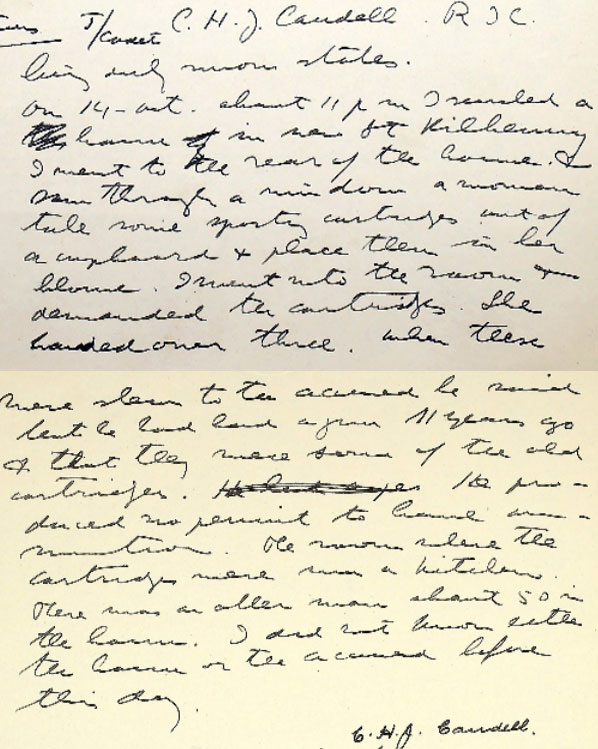 T/Cadet C. H. J. Caudell. R I C.
being duly sworn states.
On 14-Oct. about 11 p m I searched a
house in near Kilkenny
I went to the rear of the house. I
saw through a window a woman
take some sporting cartridges out of
a cupboard & place them in her
blouse. I went into the room
demanded the cartridges. She
handed over three. When these
were shewn to the accused he said
that he had had a gun 11 years ago
& that they were some of the old
cartridges. He pro-
duced no permit to have am-
munition. The room where the
cartridges were was a kitchen.
There was an older man about 50 in
the house. I did not know either
the house or the accused before
this day.
C. H. J. Caudell.